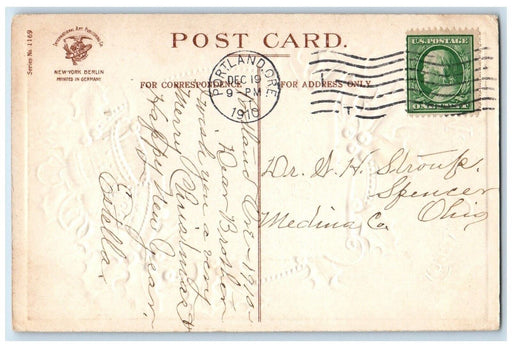 Series No. 1169
INTERNATIONAL ART PUBLISHING CO.
NEW-YORK BERLIN
PRINTED IN GERMANY
POST CARD.
FOR CORRESPONDENCE.
FOR ADDRESS ONLY.
PORTLAND, ORE.
DEC 19
9-PM
1910
U.S. POSTAGE
Portland Ore - 1910
Dear Brother
I wish you a very
Merry Christmas &
Happy New Year.
Dr. H. Stroup.
Spencer
Medina Co. Ohio